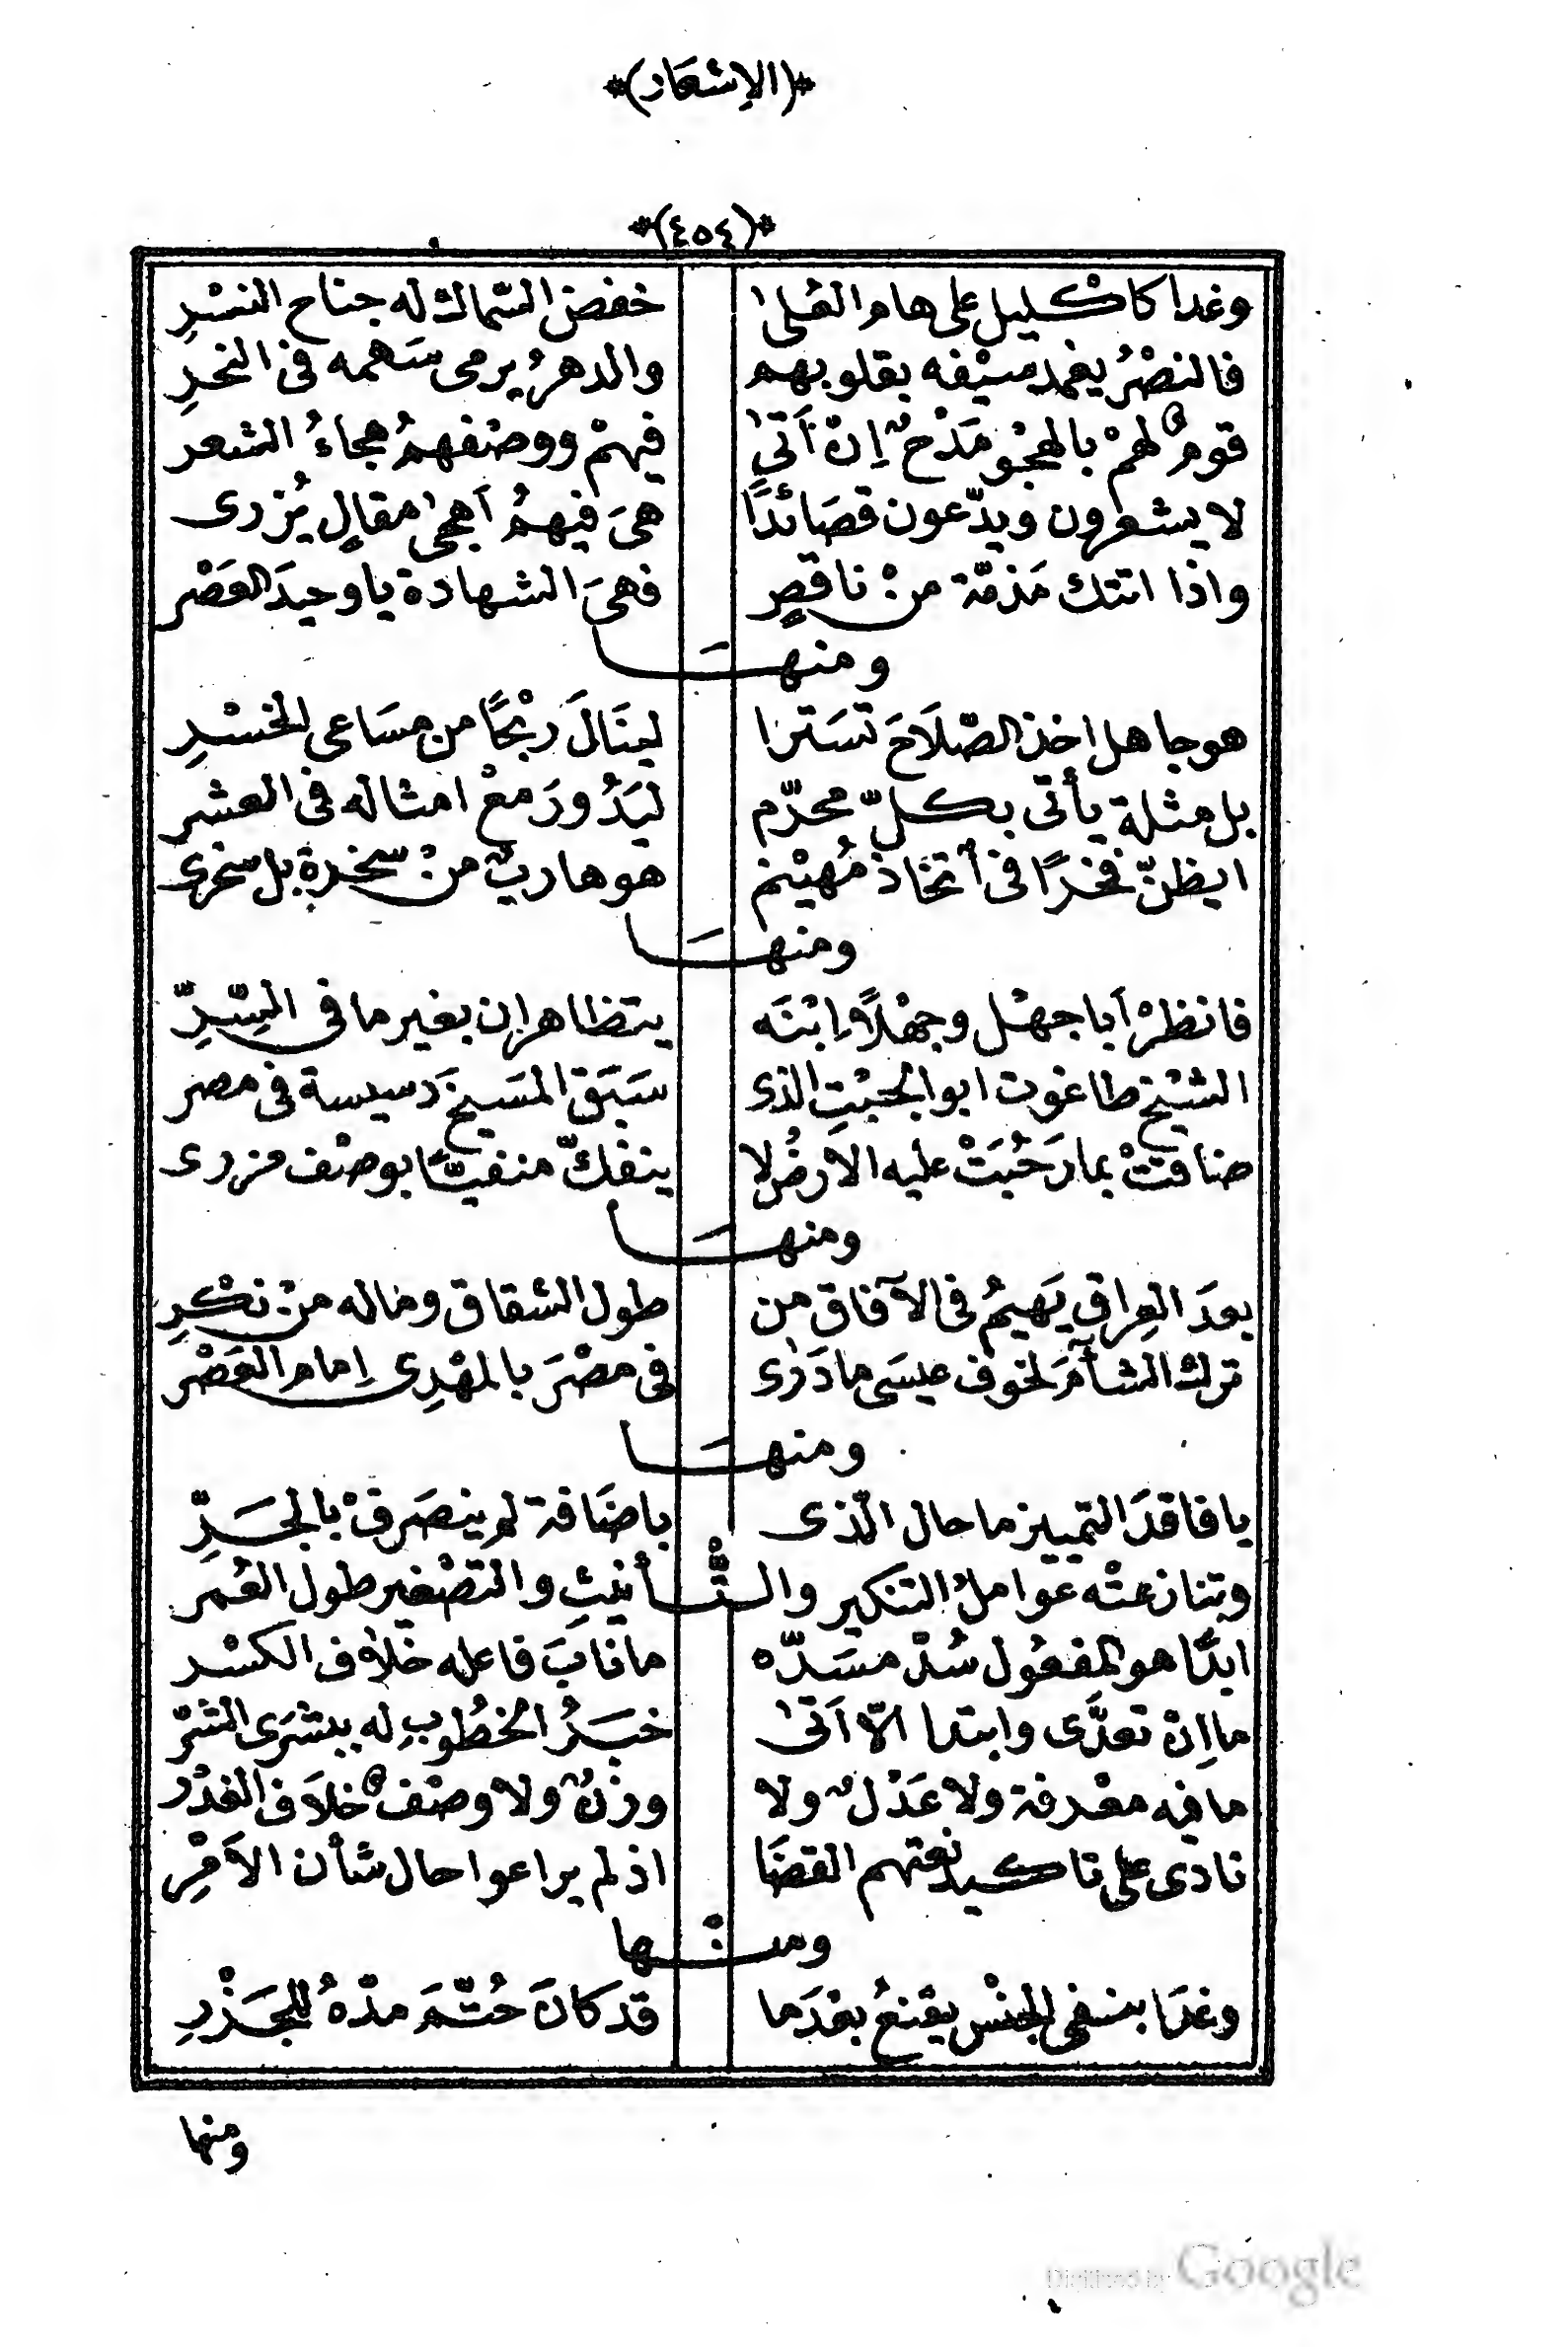 *(الاشعار)*
*(٤٥٤)*
وغدا كاكليل على هام العُلىٰ خفض السّماك له جناح النسْرِ
فالنصْرُ يغمد سيْفه بقلوبهم والدهرُ يرمى سَهمه فى النحرِ
قومٌ لهمْ بالهجْو مَدْحٌ اِنْ اَتىٰ فيهمْ ووصْفهمُ هجاءُ الشعر
لا يشعرون ويدّعون قصَائدًا هىَ فيهمُ اَهجىٰ مقالٍ يُزرى
واذا اتتك مَذمّة منْ ناقصٍ فهىَ الشهادة ياوحيدَ العَصْر
ومنهَا
هو جاهل اخذ الصّلَاحَ تسَترا لينَالَ ربْحًا من مسَاعى الخسْرِ
بل مثلة يأتى بكلّ محرّم ليَدُورَ معْ امثاله فى العشر
ايظنّ فخرًا فى اتخاذ مُهيْنم هو هاربٌ منْ سخرة بل سخرى
ومنهَا
فانظرْ اَباجهْل وجهْلاً اِبْنَه يتظاهران بغير ما فى السِّرِّ
الشيْخ طاغوت ابوالجبْتِ الذى سَبَق المسَيخَ دَسيسة فى مصر
ضاقتْ بما رَحُبَتْ عليه الارضُ لا ينفكّ منفيًّا بوصْف مزرى
ومنهَا
بعدَ العِراقِ يَهيمُ فى الآفاق من طول الشقاق وماله منْ نكْرِ
ترك الشآمَ لخوف عيسَى مادَرٰى فى مصْرَ بالمهْدِى اِمام العَصْر
ومنهَا
يافاقدَ التمييز ما حال الّذى باضَافة لم ينصَرفْ بالجَرِّ
وتنازعتْه عواملُ التنكير والتّأنيثِ والتصْغير طول العُمر
ابدًا هو المفعُول سُدّ مسَدّه ما نابَ فاعله خلاف الكسْر
ما اِنْ تعدَّى وابتدا الّا اَتىٰ خبَرُ الخطُوبِ له ببشرَى الشرّ
ما فيه معْرفة ولا عَدْلٌ ولا وزنٌ ولا وصْفٌ خلَاف الغدْر
نادى على تاكيد نعتهم القضَا اذ لم يراعوا حال شأن الاَمْرِ
ومنْها
وغدَا بنفى الجنْس يقْنعُ بعْدَما قد كانَ حُتّمَ مدّهُ للجَذْرِ
ومنها
Digitized by Google